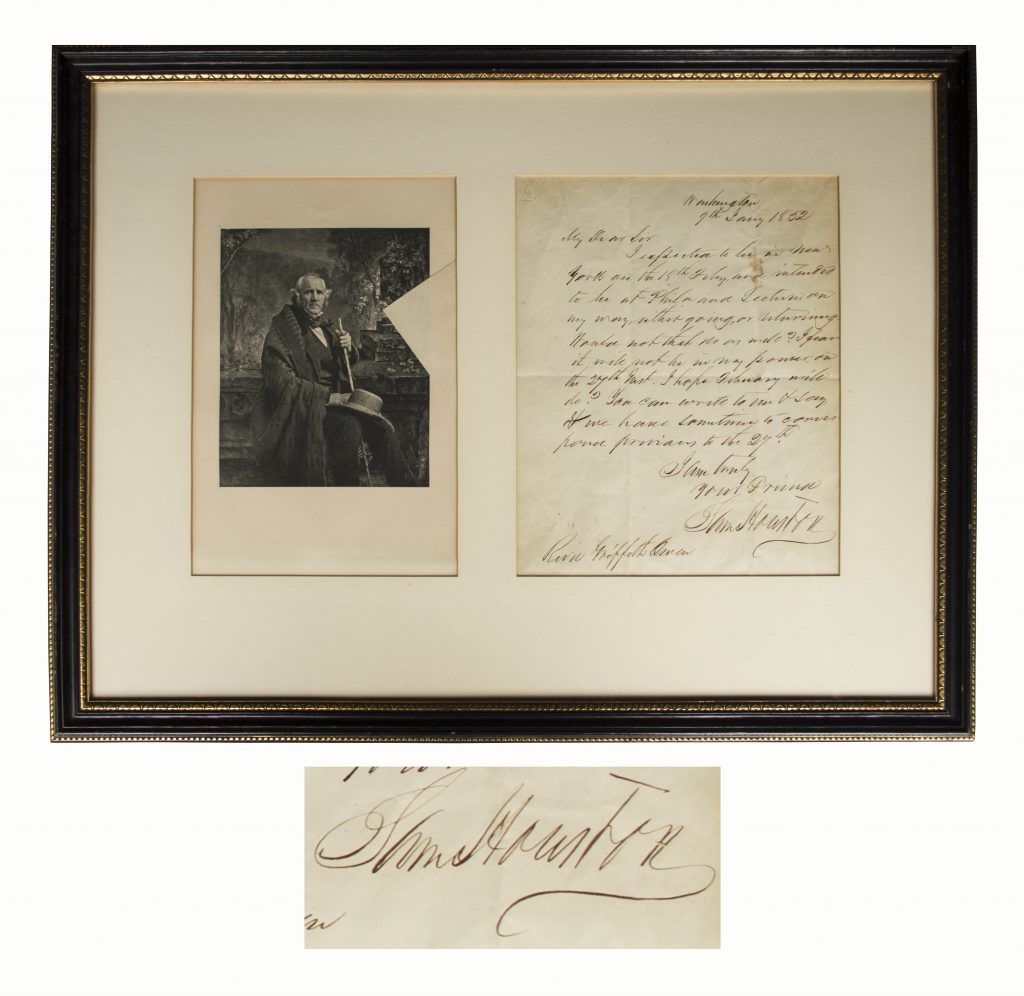 Washington
9th Jany 1852
My Dear Sir
I expected to be in New
York on the 18th Feby, and intended
to be at Phila and Lecture on
my way, either going, or returning
Would not that do as well? I fear
it will not be in my power, on
the 27th Inst. I hope February will
do? You can write to me & say
If we have sometime to corres
pond previous to the 27th.
I am truly
Your Friend
Sam Houston
Revd Griffith Owen
Sam Houston